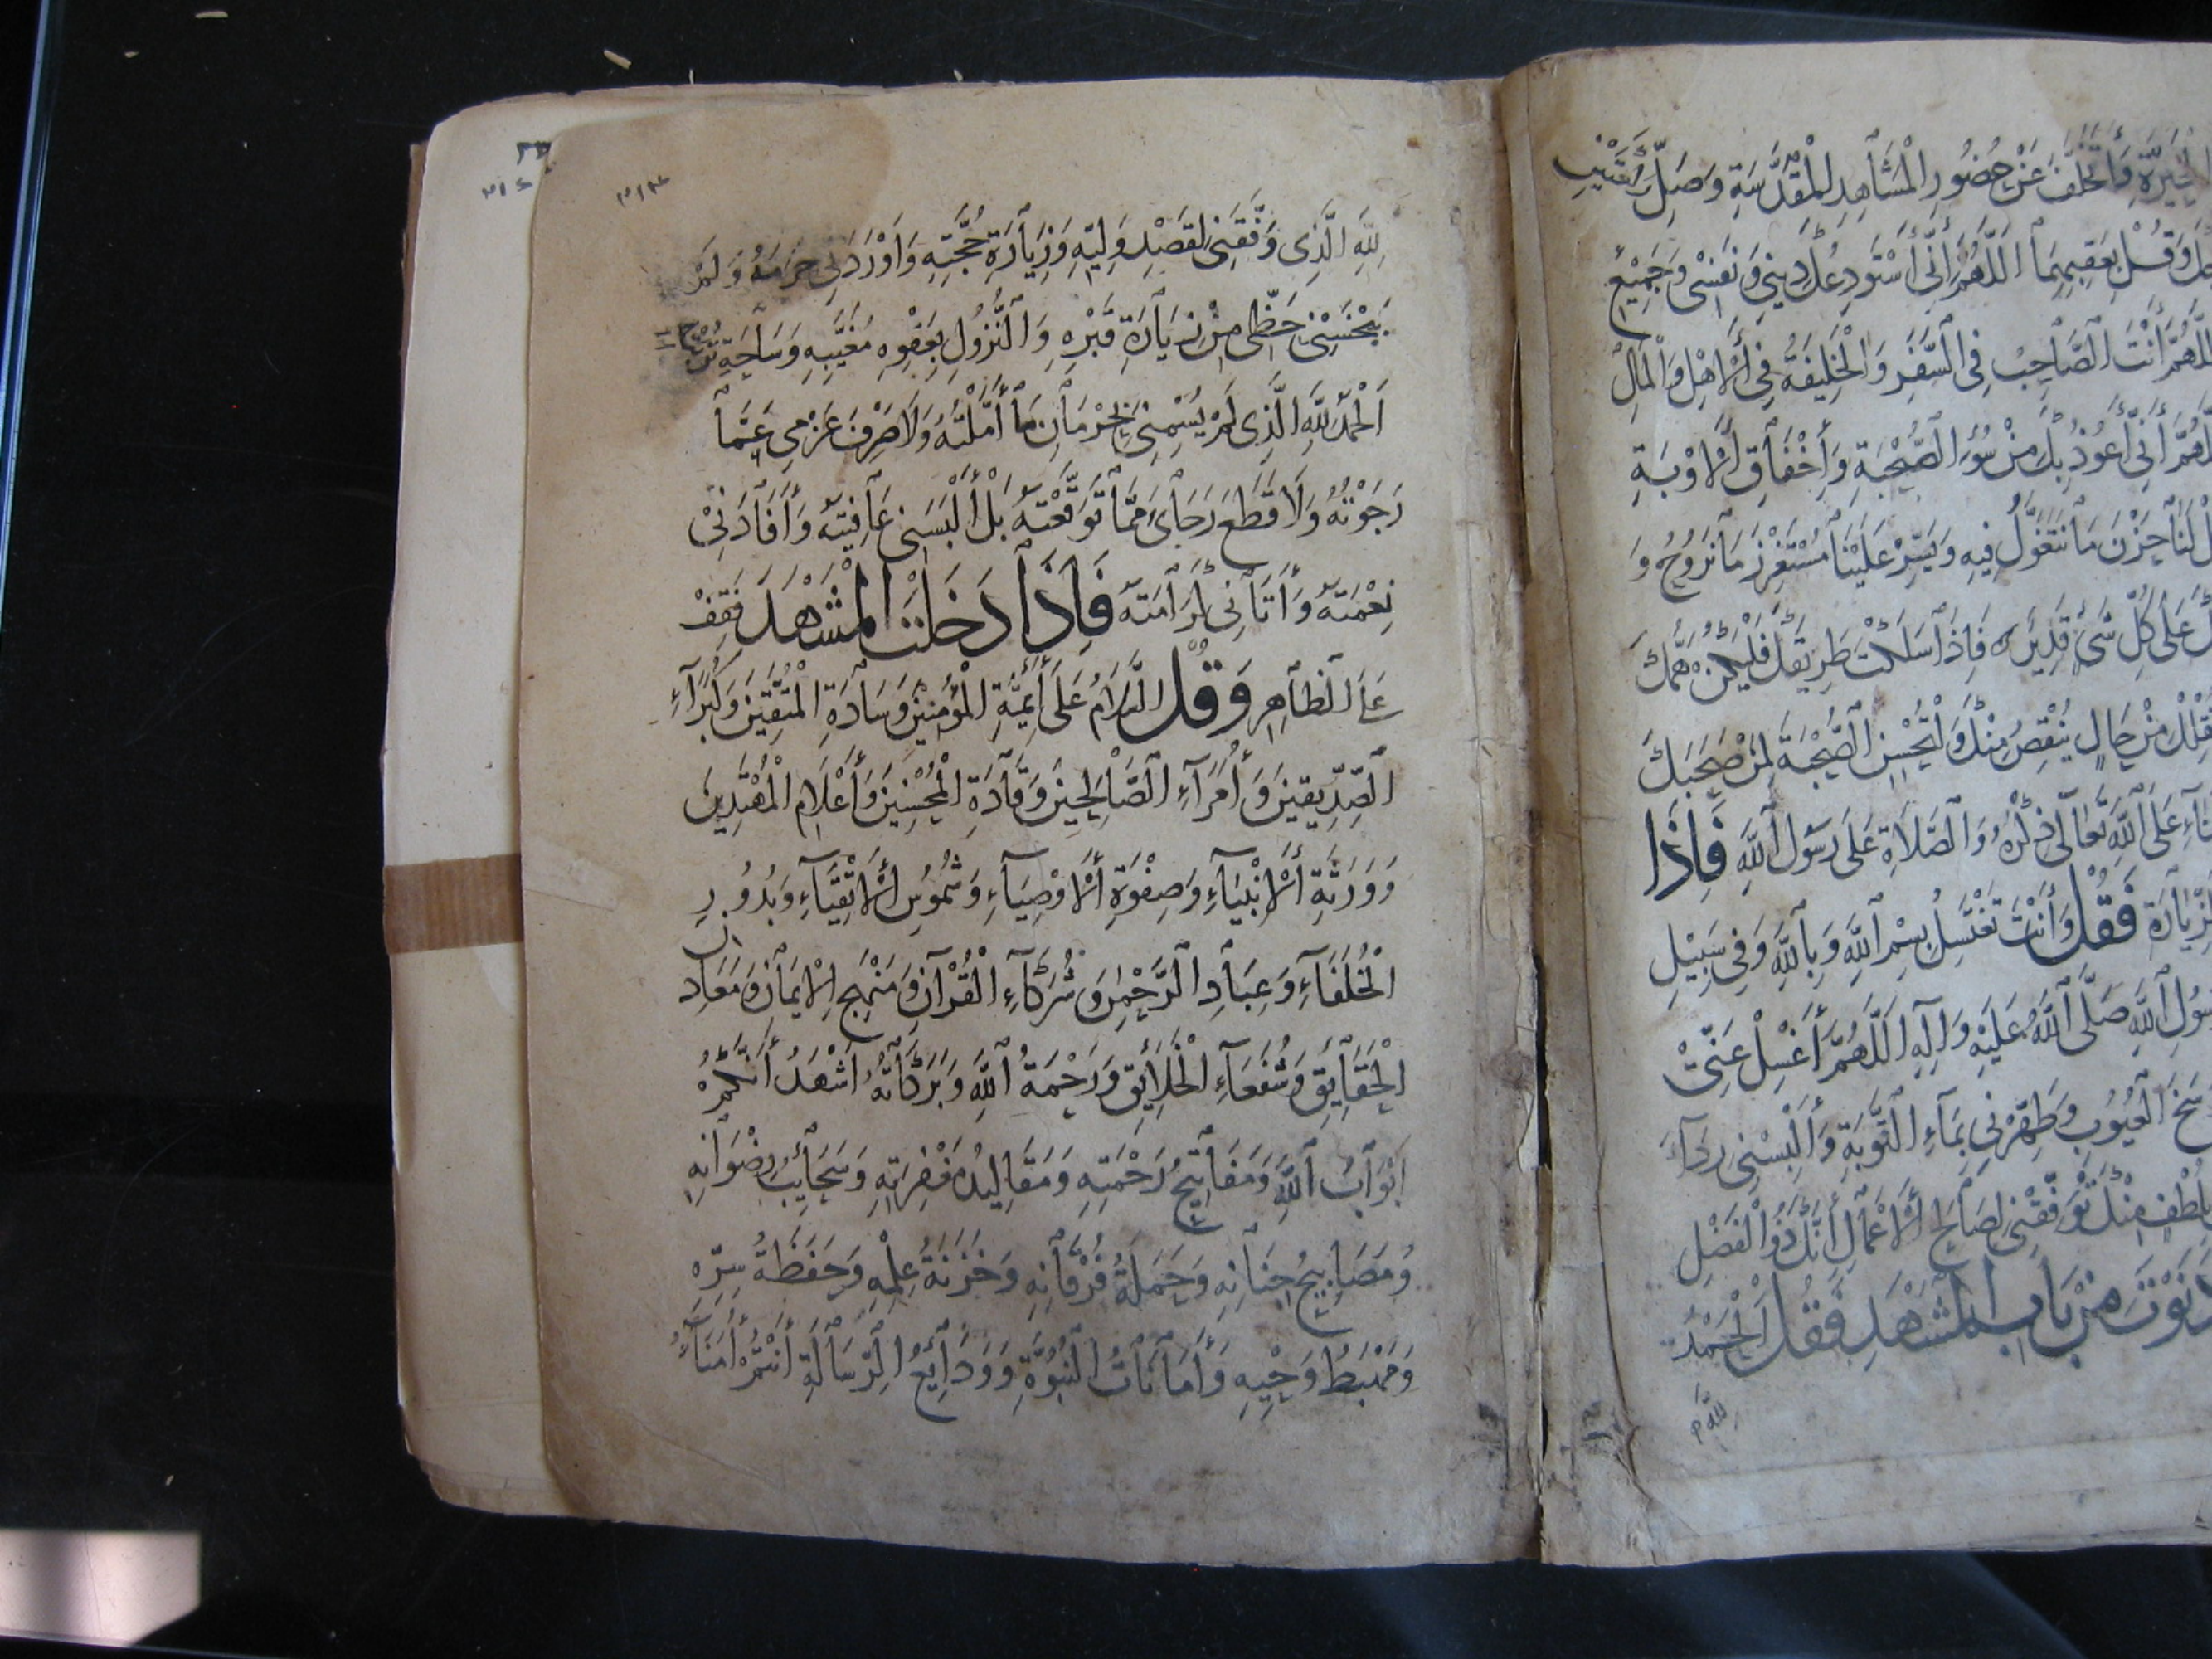 الْخِيَرَةِ وَأَتَخَلَّفَ عَنْ حُضُورِ الْمَشَاهِدِ الْمُقَدَّسَةِ وَصَلِّ رَكْعَتَيْنِ
وَقُلْ بِعَقِيبِهِمَا اَللّٰهُمَّ إِنِّي أَسْتَوْدِعُكَ دِينِي وَنَفْسِي وَجَمِيْعَ
اللّٰهُمَّ أَنْتَ الصَّاحِبُ فِي السَّفَرِ وَالْخَلِيفَةُ فِي الْأَهْلِ وَالْمَالِ
اَللّٰهُمَّ إِنِّي أَعُوذُ بِكَ مِنْ سُوءِ الصُّحْبَةِ وَإِخْفَاقِ الْأَوْبَةِ
لَنَا حَزْنَ مَا نَتَغَوَّلُ فِيهِ وَيَسِّرْ عَلَيْنَا مُسْتَغْزَرَ مَا نَرُوحُ وَ
عَلَى كُلِّ شَيْءٍ قَدِيرٌ فَإِذَا سَلَكْتَ طَرِيقَكَ فَلْيَكُنْ هَمُّكَ
مِنْ حَالٍ يَنْقُصُ مِنْكَ وَلْتُحْسِنِ الصُّحْبَةَ لِمَنْ صَحِبَكَ
عَلَى اللّٰهِ تَعَالَى ذِكْرُهُ وَالصَّلَاةِ عَلَى رَسُولِ اللّٰهِ فَإِذَا
الزِّيَارَةَ فَقُلْ وَأَنْتَ تَغْتَسِلُ بِسْمِ اللّٰهِ وَبِاللّٰهِ وَفِي سَبِيْلِ
رَسُولِ اللّٰهِ صَلَّى اللّٰهُ عَلَيْهِ وَآلِهِ اَللّٰهُمَّ اغْسِلْ عَنِّي
الْعُيُوبِ وَطَهِّرْنِي بِمَاءِ التَّوْبَةِ وَأَلْبِسْنِي رِدَاءَ
بِلُطْفٍ مِنْكَ تُوَفِّقْنِي لِصَالِحِ الْأَعْمَالِ إِنَّكَ ذُو الْفَضْلِ
دَنَوْتَ مِنْ بَابِ الْمَشْهَدِ فَقُلِ الْحَمْدُ
لِلّٰهِ
٣١٣
٣١٤
لِلّٰهِ الَّذِي وَفَّقَنِي لِقَصْدِ وَلِيِّهِ وَزِيَارَةِ حُجَّتِهِ وَأَوْرَدَنِي حَرَمَهُ وَلَمْ
يَبْخَسْنِي حَظِّي مِنْ زِيَارَةِ قَبْرِهِ وَالنُّزُولِ بِعَقْوَةِ مُغَيَّبِهِ وَسَاحَةِ تُرْبَتِهِ
اَلْحَمْدُ لِلّٰهِ الَّذِي لَمْ يَسِمْنِي بِحِرْمَانِ مَا أَمَّلْتُهُ وَلَا صَرَفَ عَزْمِي عَمَّا
رَجَوْتُهُ وَلَا قَطَعَ رَجَائِي مِمَّا تَوَقَّعْتُهُ بَلْ أَلْبَسَنِي عَافِيَتَهُ وَأَفَادَنِيْ
نِعْمَتَهُ وَأَتَانِي كَرَامَتَهُ فَإِذَا دَخَلْتَ الْمَشْهَدَ فَقِفْ
عَلَى الظَّاهِرِ وَقُلْ السَّلَامُ عَلَى أَئِمَّةِ الْمُؤْمِنِيْنَ وَسَادَةِ الْمُتَّقِيْنَ وَكُبَرَآءِ
الصِّدِّيقِيْنَ وَأُمَرَآءِ الصَّالِحِيْنَ وَقَادَةِ الْمُحْسِنِيْنَ وَأَعْلَامِ الْمُهْتَدِيْنَ
وَوَرَثَةِ الْأَنْبِيَآءِ وَصِفْوَةِ الْأَوْصِيَآءِ وَشُمُوسِ الْأَتْقِيَآءِ وَبُدُورِ
الْخُلَفَآءِ وَعِبَادِ الرَّحْمٰنِ وَشُرَكَآءِ الْقُرْآنِ وَمَنْهَجِ الْإِيْمَانِ وَمَعَادِنِ
الْحَقَايِقِ وَشُفَعَآءِ الْخَلَائِقِ وَرَحْمَةُ اللّٰهِ وَبَرَكَاتُهُ اَشْهَدُ أَنَّكُمْ
اَبْوَابُ اللّٰهِ وَمَفَاتِيْحُ رَحْمَتِهِ وَمَقَالِيدُ مَغْفِرَتِهِ وَسَحَايِبُ رِضْوَانِهِ
وَمَصَابِيحُ جِنَانِهِ وَحَمَلَةُ فُرْقَانِهِ وَخَزَنَةُ عِلْمِهِ وَحَفَظَةُ سِرِّهِ
وَمَهْبَطُ وَحْيِهِ وَأَمَانَاتُ النُّبُوَّةِ وَوَدَايِعُ الرِّسَالَةِ أَنْتُمْ أُمَنَآءُ